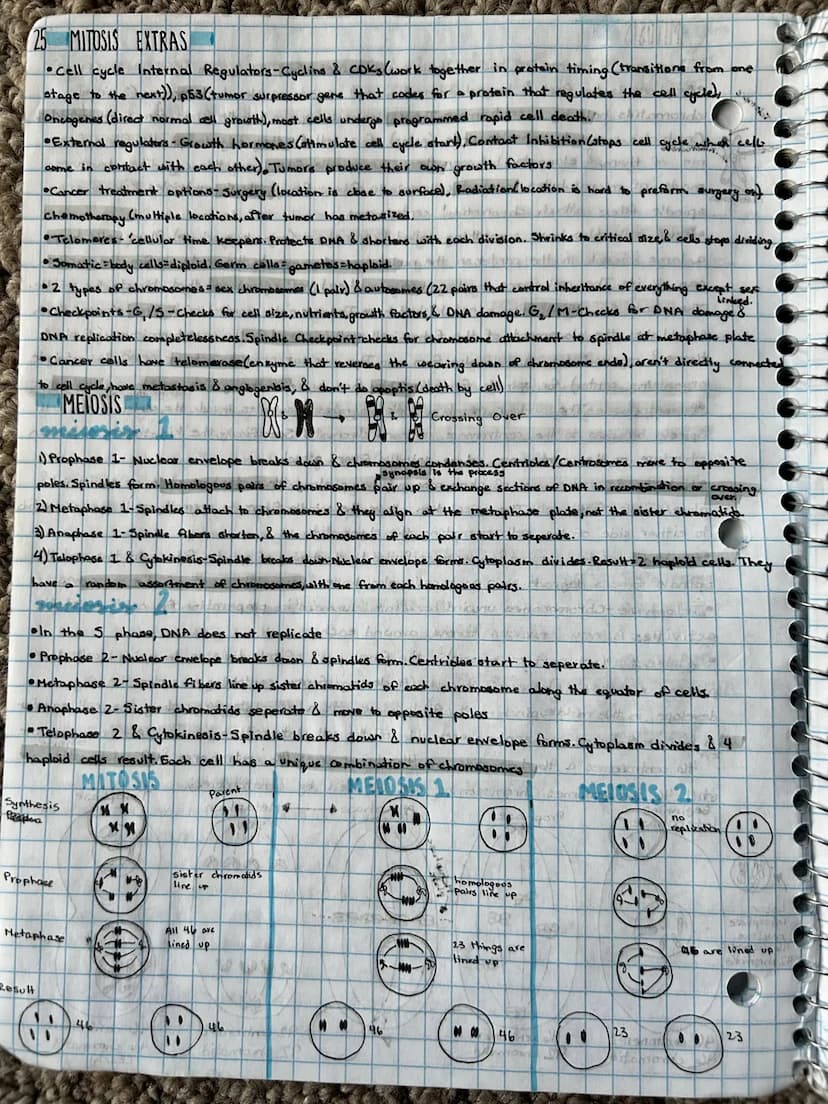 25 MITOSIS EXTRAS
•Cell cycle Internal Regulators-Cyclins & CDKs(work together in protein timing(transitions from one
stage to the next)), p53(tumor surpressor gene that codes for a protein that regulates the cell cycle),
Oncogenes(direct normal cell growth), most cells undergo programmed rapid cell death.
•External regulators-Growth hormones(stimulate cell cycle start), Contact Inhibition(stops cell cycle when cells
come in contact with each other). Tumors produce their own growth factors
•Cancer treatment options-Surgery (location is close to surface), Radiation(location is hard to preform surgery on)
Chemotherapy(multiple locations, after tumor has metasized.
•Telomeres-'cellular time keepers. Protects DNA & shortens with each division. Shrinks to critical size, & cells stops dividing
•Somatic=body cells=diploid. Germ cells=gametes=haploid.
•2 types of chromosomes=sex chromosomes (1 pair) & autosomes (22 pairs that control inheritance of everything except sex
linked.
•Checkpoints-G1/S-Checks for cell size, nutrients, growth factors, & DNA damage. G2/M-Checks for DNA damage &
DNA replication completelessness. Spindle Checkpoint-checks for chromosome attachment to spindle at metaphase plate
•Cancer cells have telomerase(enzyme that reverses the wearing down of chromosome ends), aren't directly connected
to cell cycle, have metastasis & angbgenbis, & don't do apoptis(death by cell)
MEIOSIS
& → & Crossing Over
miosis 1
1) Prophase 1- Nuclear envelope breaks down & chromosomes condenses. Centrioles/Centrosomes move to opposite
synopsis is the process
poles. Spindles form. Homologous pairs of chromosomes pair up & exchange sections of DNA in recombination or crossing
over.
2) Metaphase 1-Spindles attach to chromosomes & they align at the metaphase plate, not the sister chromatids.
3) Anaphase 1-Spindle fibers shorten, & the chromosomes of each pair start to seperate.
4) Telophase 1 & Cytokinesis-Spindle breaks down-Nuclear envelope forms. Cytoplasm divides. Result=2 haploid cells. They
have a random assortment of chromosomes, with one from each homologous pairs.
miosis 2
•In the S phase, DNA does not replicate
•Prophase 2-Nuclear envelope breaks down & spindles form. Centrioles start to seperate.
•Metaphase 2-Spindle fibers line up sister chromatids of each chromosome along the equator of cells.
•Anaphase 2-Sister chromatids seperate & move to opposite poles
•Telophase 2 & Cytokinesis-Spindle breaks down & nuclear envelope forms. Cytoplasm divides & 4
haploid cells result. Each cell has a unique combination of chromosomes
MITOSIS MEIOSIS 1 MEIOSIS 2
Synthesis Parent no
replication
Prophase sister chromatids
line up
homologous
pairs line up
Metaphase All 46 are
lined up
23 things are
lined up
46 are lined up
Result
46 46 46 46 23 23